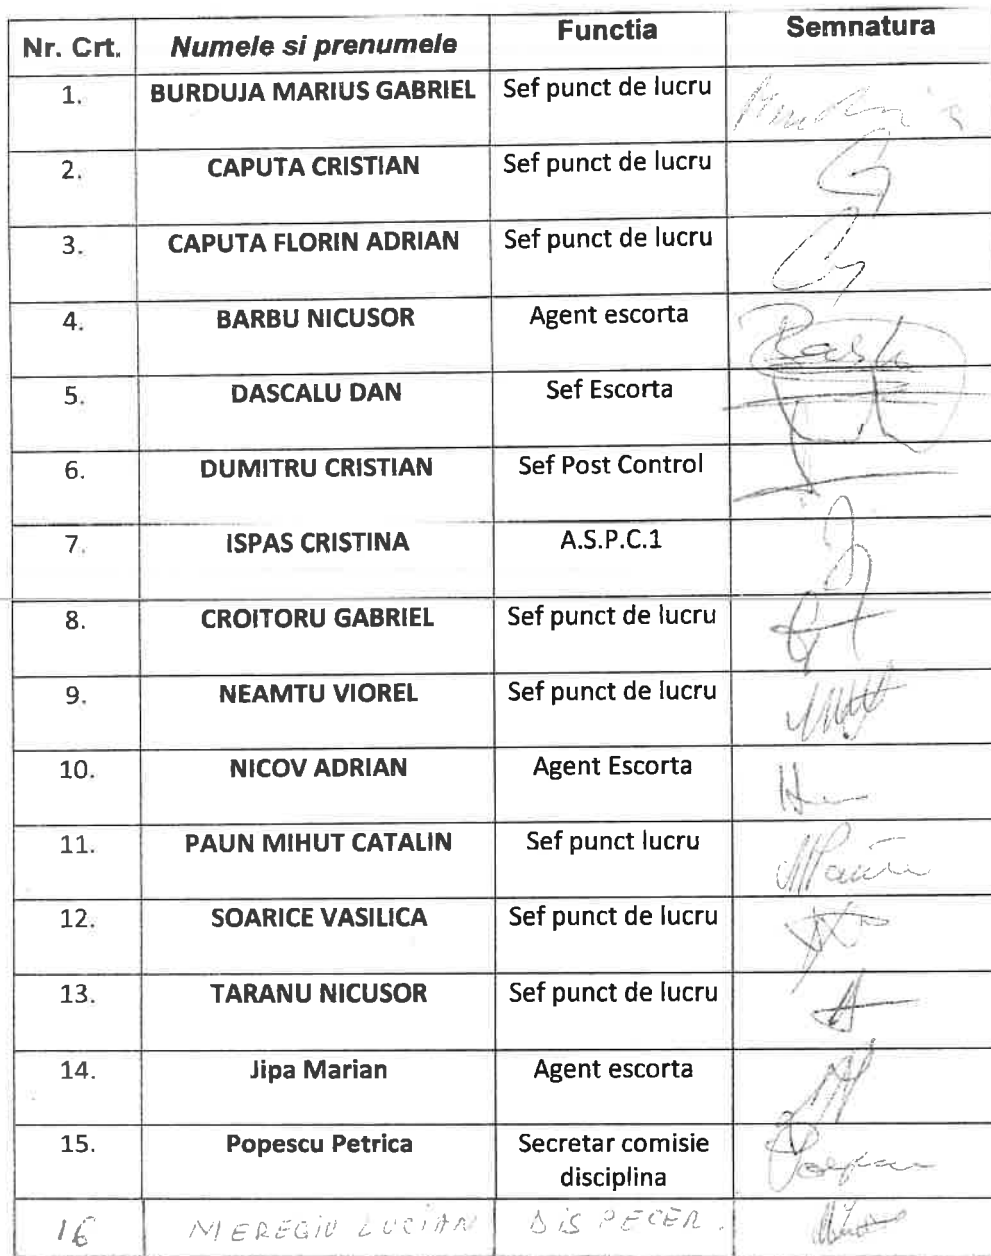 Nr. Crt. Numele si prenumele Functia Semnatura
1. BURDUJA MARIUS GABRIEL Sef punct de lucru
2. CAPUTA CRISTIAN Sef punct de lucru
3. CAPUTA FLORIN ADRIAN Sef punct de lucru
4. BARBU NICUSOR Agent escorta
5. DASCALU DAN Sef Escorta
6. DUMITRU CRISTIAN Sef Post Control
7. ISPAS CRISTINA A.S.P.C.1
8. CROITORU GABRIEL Sef punct de lucru
9. NEAMTU VIOREL Sef punct de lucru
10. NICOV ADRIAN Agent Escorta
11. PAUN MIHUT CATALIN Sef punct lucru
12. SOARICE VASILICA Sef punct de lucru
13. TARANU NICUSOR Sef punct de lucru
14. Jipa Marian Agent escorta
15. Popescu Petrica Secretar comisie
disciplina
16 MEREGIU LUCIAN DISPECER.